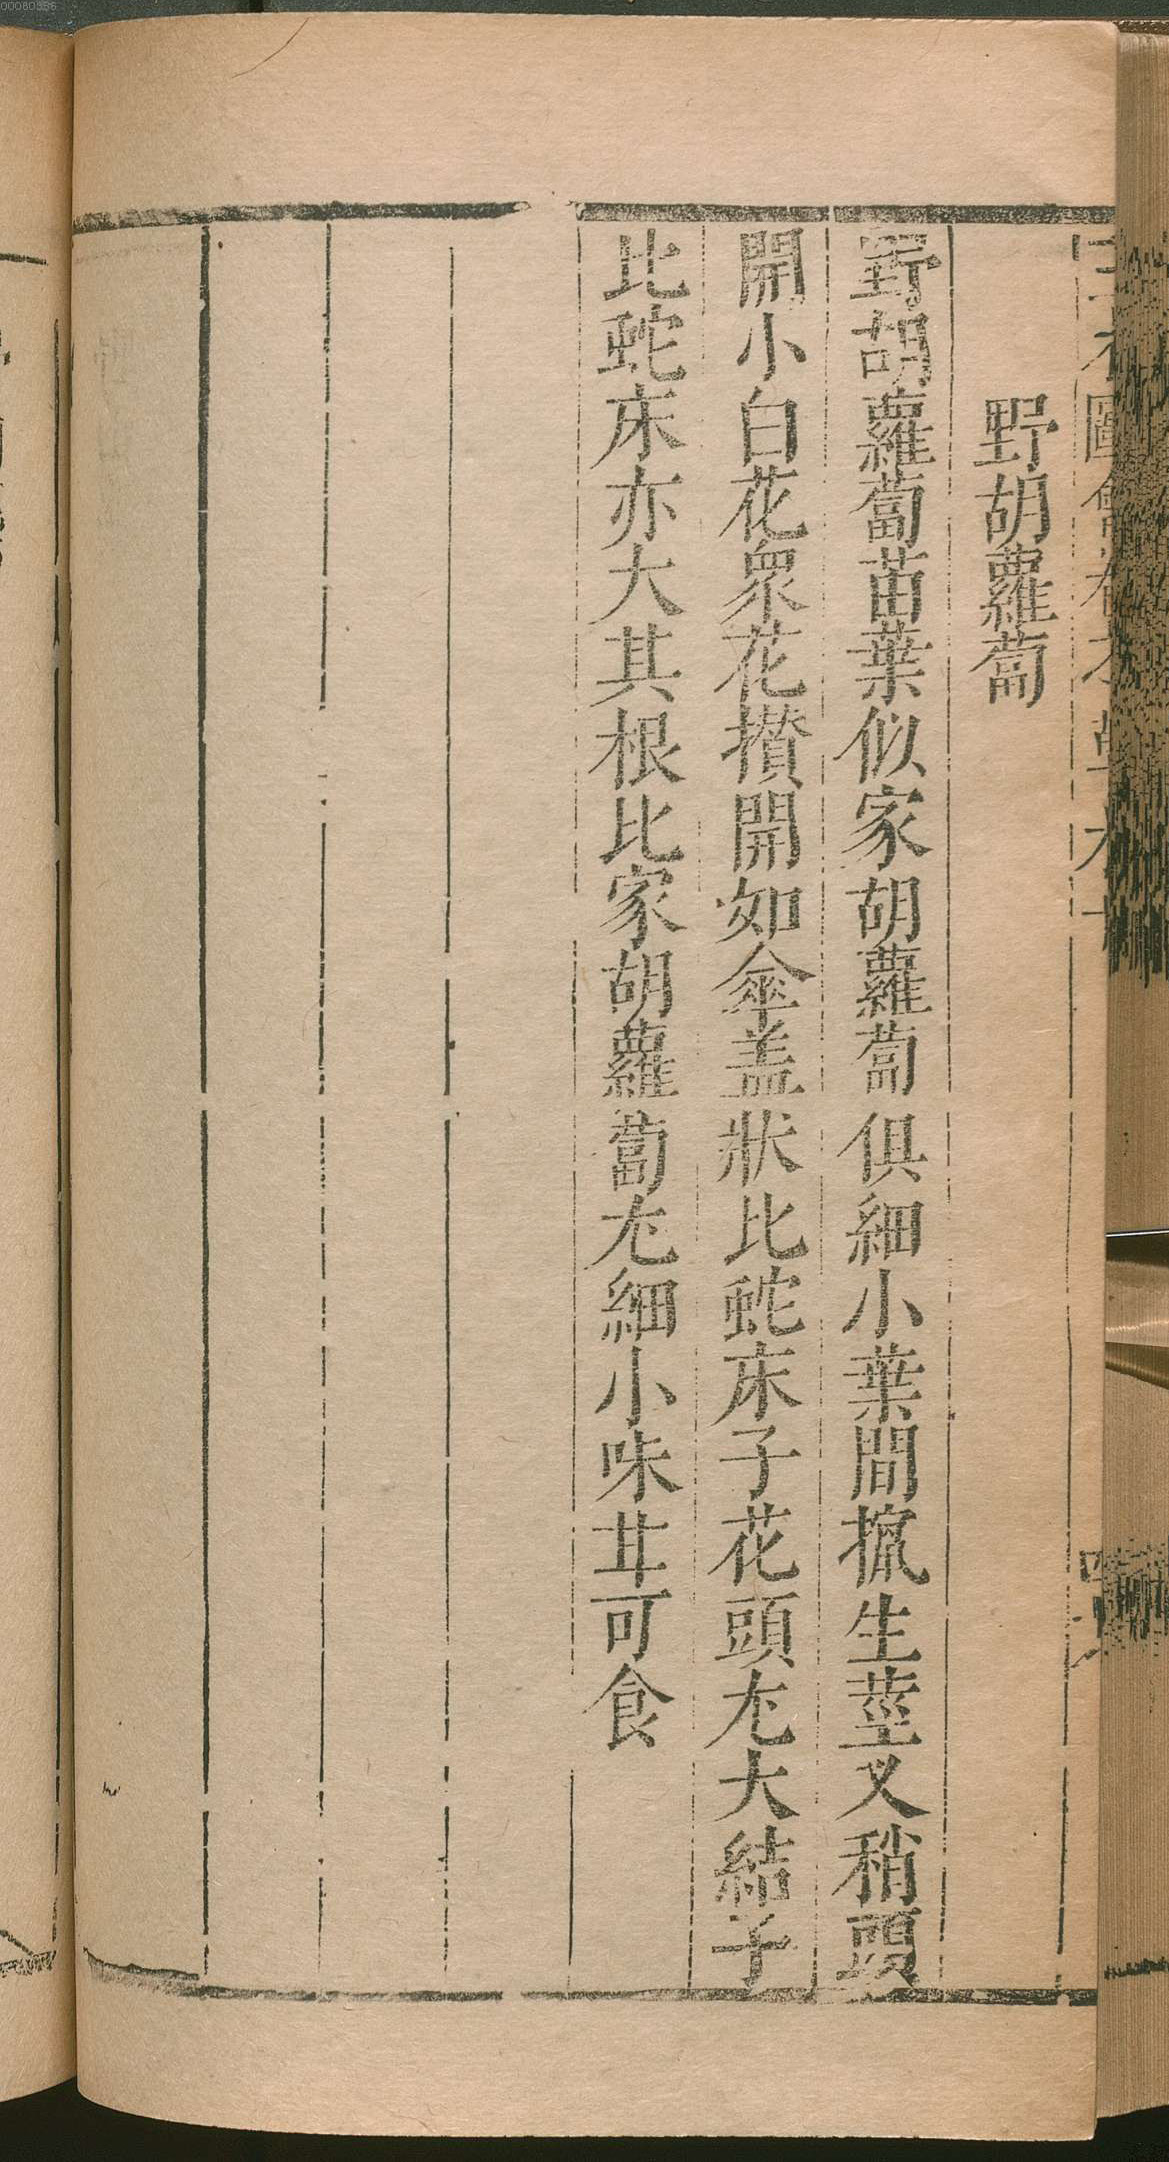 00080356
野胡蘿蔔
野胡蘿蔔苗葉似家胡蘿蔔俱細小葉間攛生莖叉稍頭
開小白花衆花攢開如傘盖狀比蛇床子花頭尢大結子
比蛇床亦大其根比家胡蘿蔔尢細小味甘可食